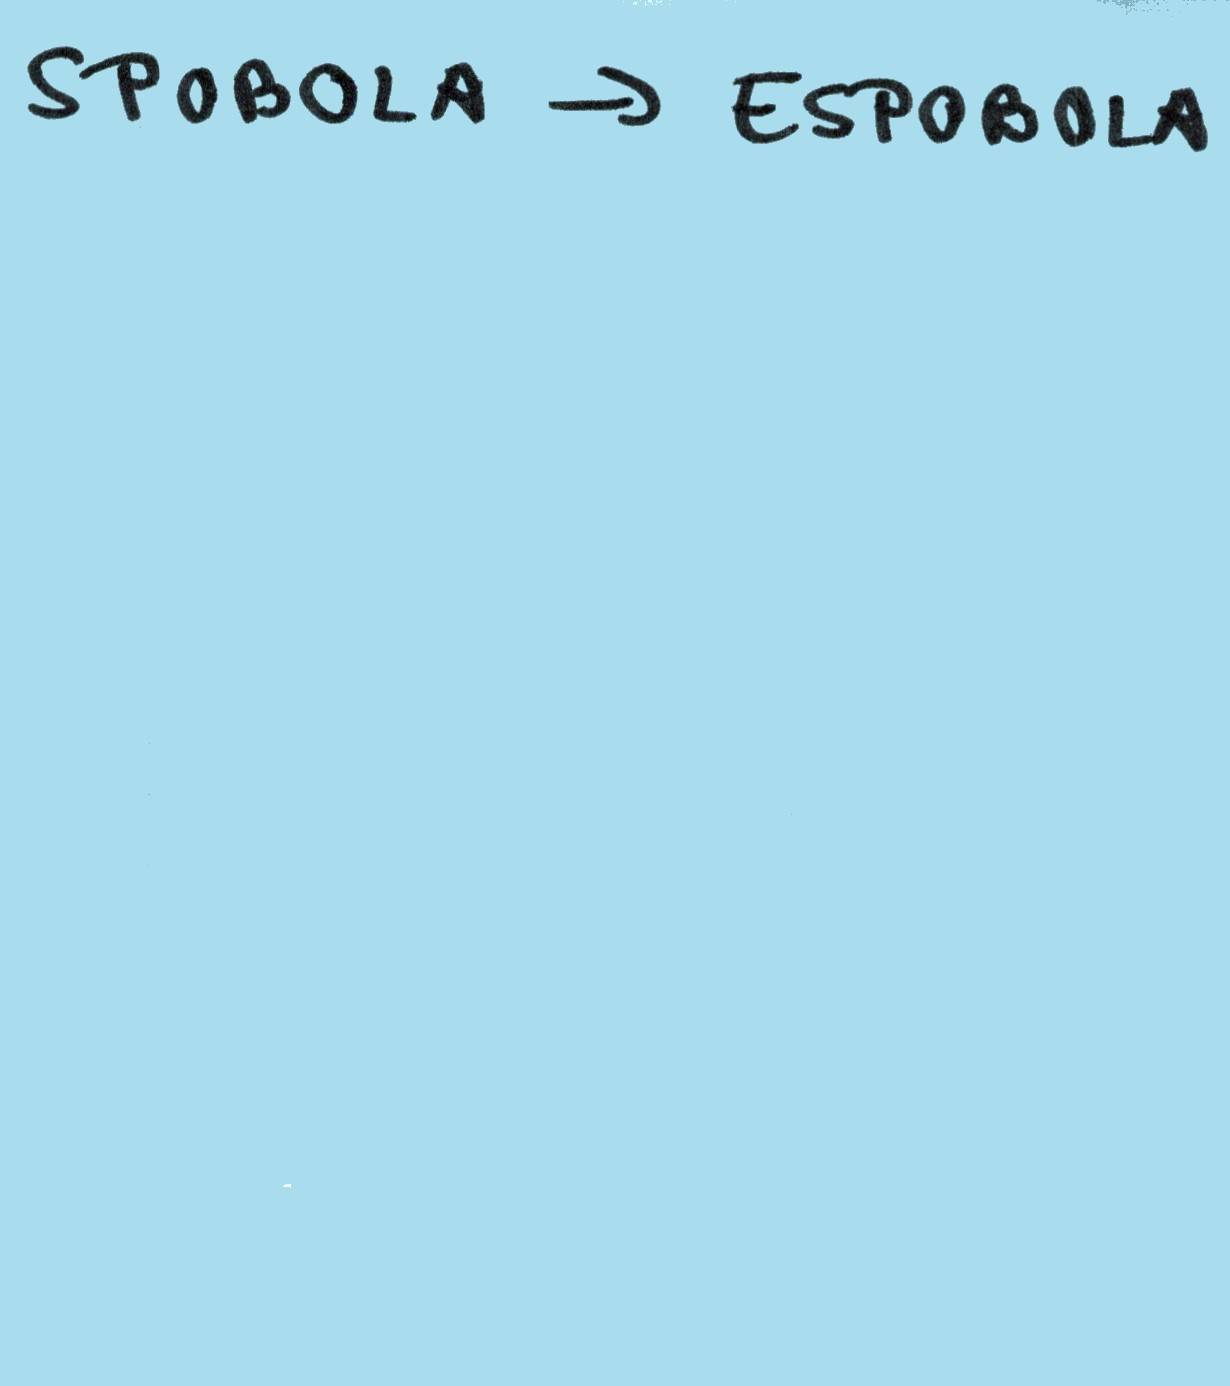 SPOBOLA → ESPOBOLA